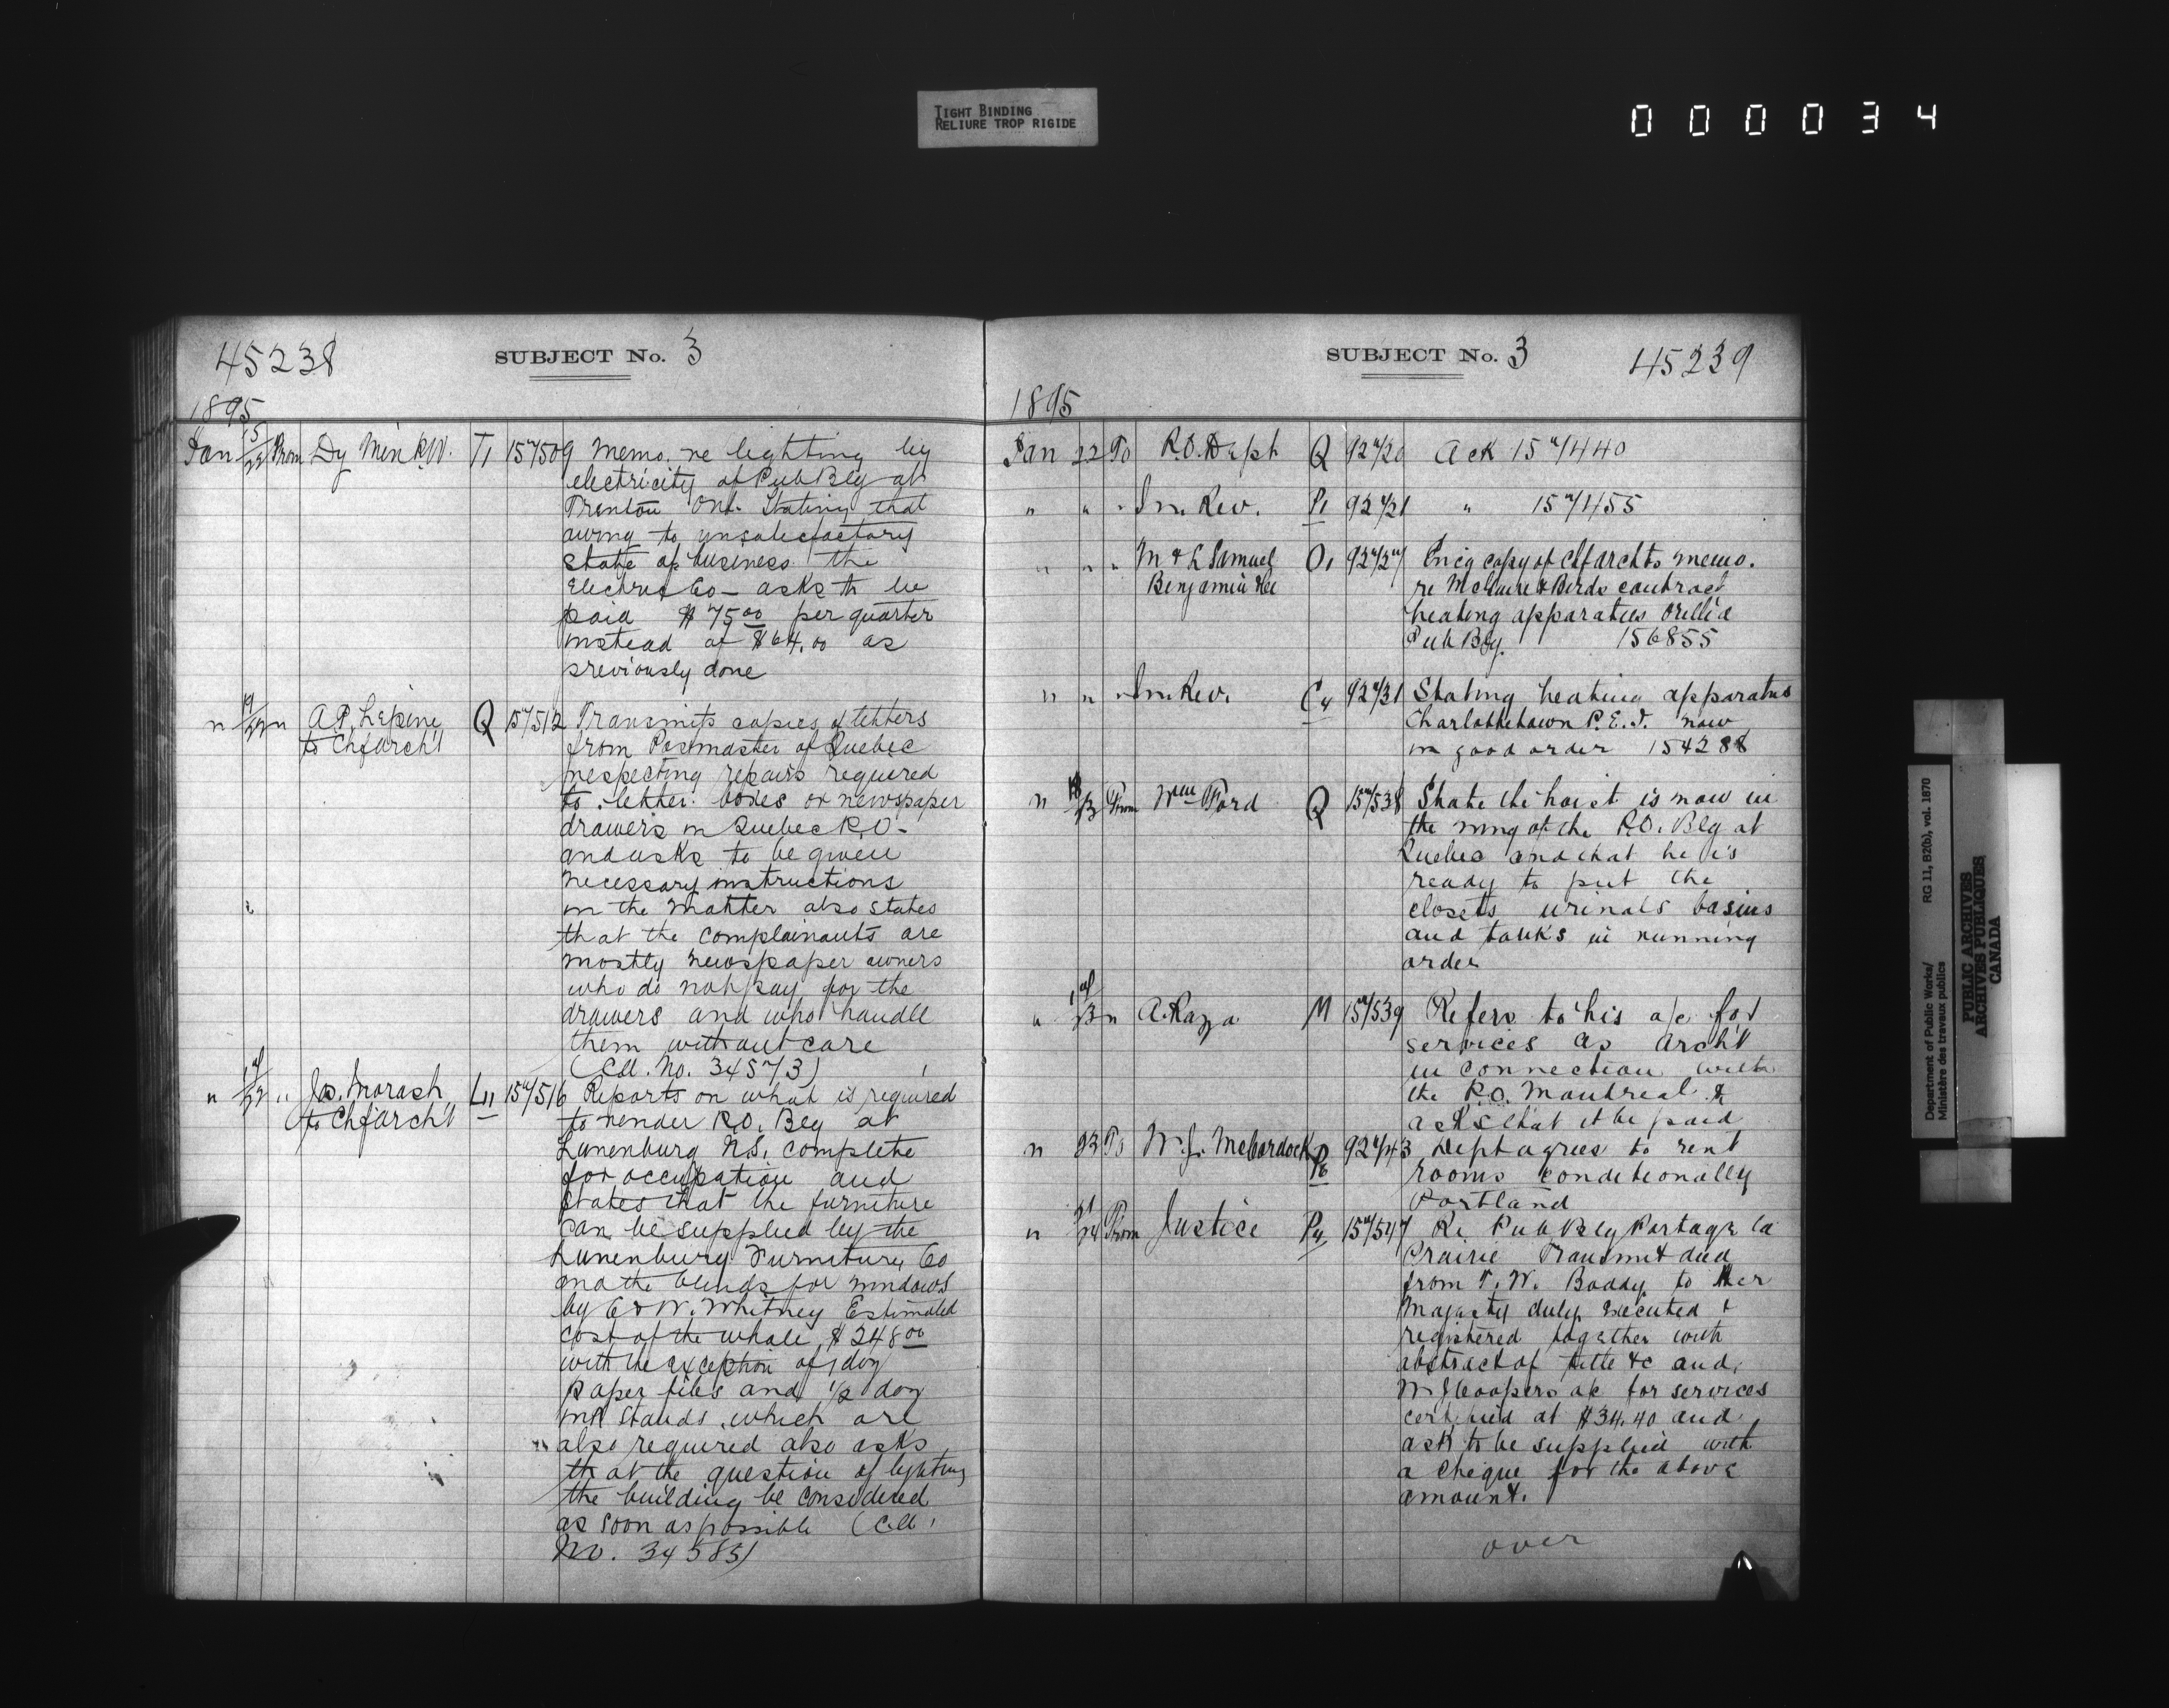 TIGHT BINDING
RELIURE TROP RIGIDE
000034
45238
SUBJECT No. 3
1895
Jan 15/22 From Dy Min P.W. T1 157509 Memo. re lighting by
electricity of Pub Blg at
Trenton Ont. Stating that
owing to unsatisfactory
state of business the
Electric Co - asks to be
paid $75.00 per quarter
instead of $64.00 as
previously done
" 19/22 " A.P. Lepine Q 157512 Transmits copies of letters
to Chf Archt from Posmaster of Quebec
respecting repairs required
to letter boxes or newspaper
drawers in Quebec P.O.
and asks to be given
necessary instructions
in the matter also states
that the complainants are
mostly newspaper owners
who do not pay for the
drawers and who handle
them without care
(Cd. No. 34573)
" 22 " Jas. Morash L11 157516 Reports on what is required
to Chf Archt to render P.O. Blg at
Lunenburg N.S. complete
for occupation and
states that the furniture
can be supplied by the
Lunenburg Furniture Co
and the blinds for windows
by C & W. Whitney Estimated
cost of the whole $248.00
with the exception of 1 doz
paper files and 1/2 doz
ink stands which are
also required also asks
that the question of lighting
the building be considered
as soon as possible (Cd.
No. 34585)
SUBJECT No. 3
45239
1895
Jan 22 To P.O. Dept Q 92720 Ack 157440
" " " In. Rev. P1 92721 " 157455
" " " M & L Samuel O1 92727 Encg copy of Chf archts memo.
Benjamin &Co re McGuire & Birds contract
heating apparatus Orillia
Pub Blg. 156855
" " " In. Rev. C4 92731 Stating heating apparatus
Charlottetown P.E.I. now
in good order 154288
" 18/23 From Wm Ford Q 157538 State the hoist is now in
the wing of the P.O. Blg at
Quebec and that he is
ready to put the
closets urinals basins
and tanks in running
order
" 23 " A. Raza M 157539 Refers to his a/c for
services as archt
in connection with
the P.O. Montreal &
asks that it be paid
" 23 To W.J. McCordock P6 92743 Dept agrees to rent
rooms conditionally
Portland
" 21/24 From Justice P4 157547 Re Pub Blg Portage la
Prairie Transmit deed
from T. W. Boddy to Her
Majesty duly executed &
registered together with
abstract of title &c and
W J Coopers a/c for services
certified at $34.40 and
ask to be supplied with
a cheque for the above
amount.
over
Department of Public Works/ RG 11, B2(b), vol. 1870
Ministère des travaux publics
PUBLIC ARCHIVES
ARCHIVES PUBLIQUES
CANADA